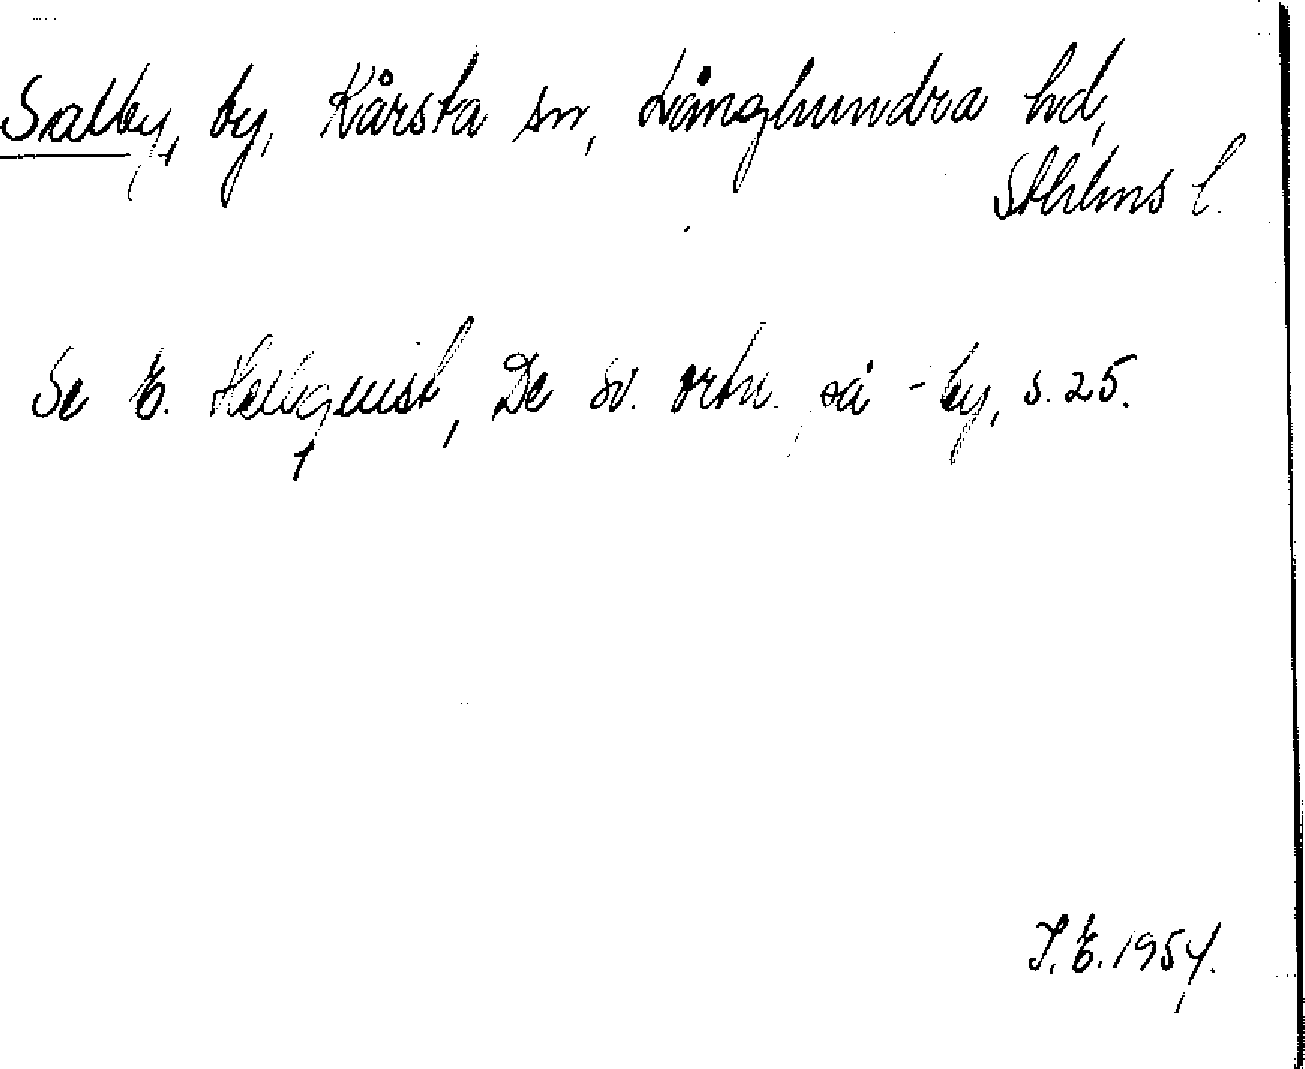 Salby, by, Kårsta sn, Långhundra hd,
Sthlms l.
Se E. Hellquist, De sv. ortn. på -by, s. 25.
I. E. 1954.